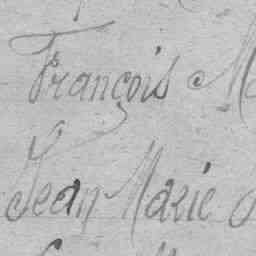 François M
Jean Marie